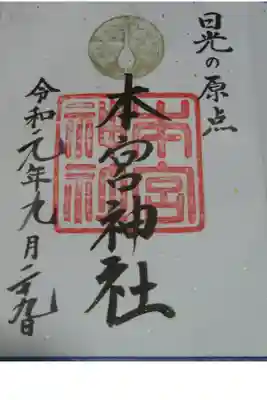 日光の原点
本宮神社
本宮神社
令和元年九月二十九日